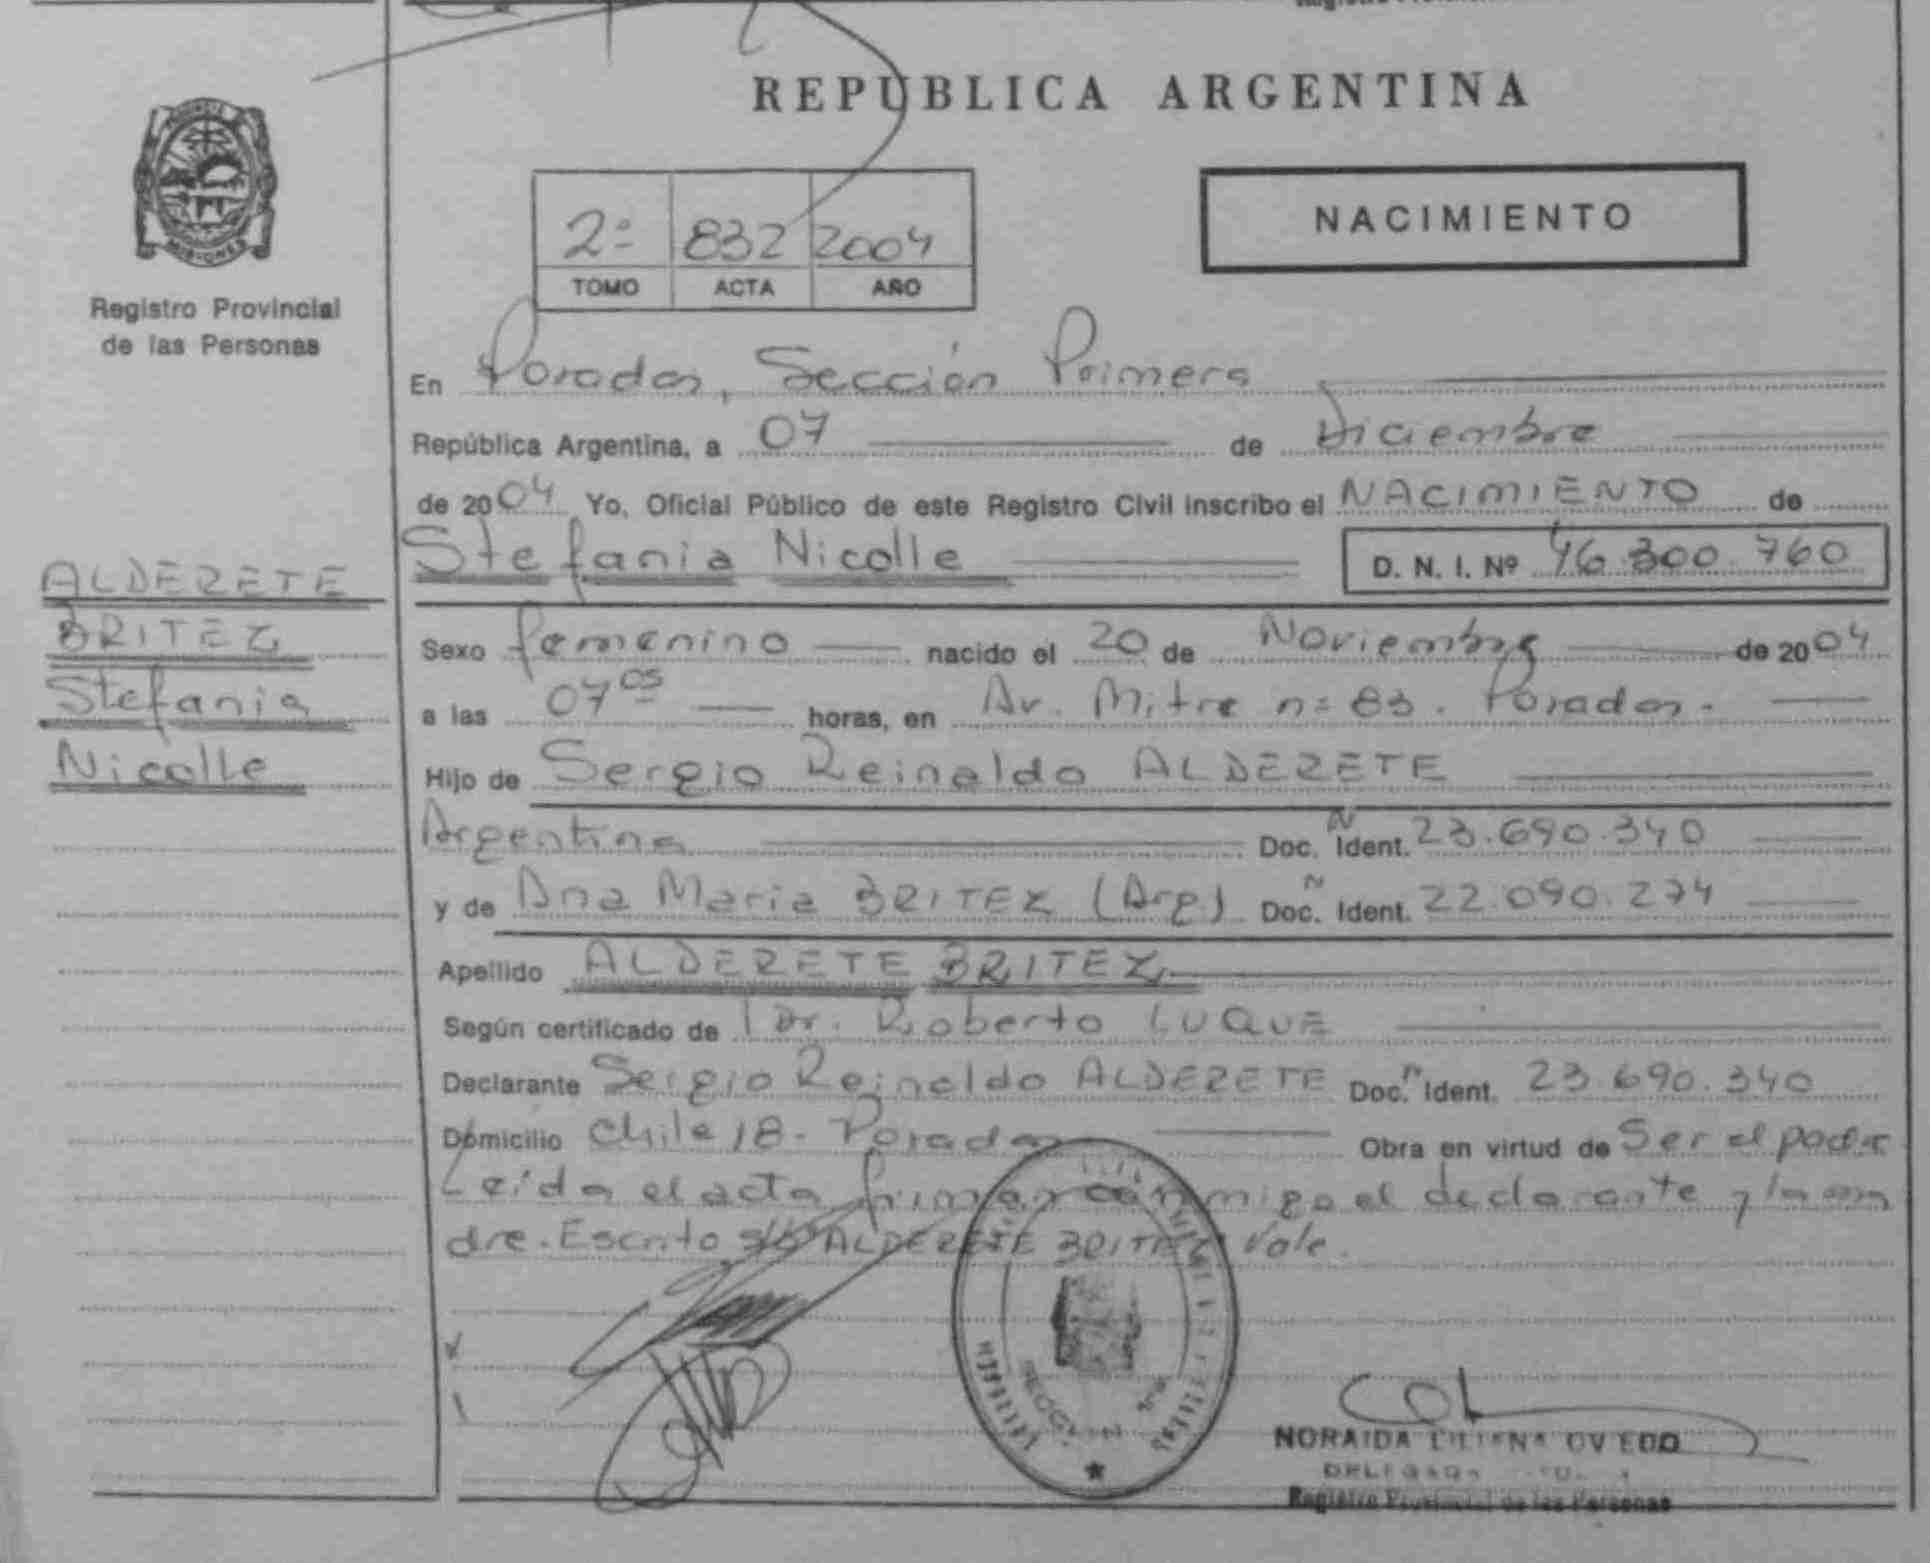 REPUBLICA ARGENTINA
MISIONES
Registro Provincial
de las Personas
2º 832 2004
TOMO ACTA AÑO
NACIMIENTO
En Posadas, Sección Primera
República Argentina, a 07 de Diciembre
de 2004 Yo, Oficial Público de este Registro Civil inscribo el NACIMIENTO de
Stefania Nicolle D. N. I. Nº 46.300.760
ALDERETE
BRITEZ
Stefania
Nicolle
Sexo femenino nacido el 20 de Noviembre de 2004
a las 07 05 horas, en Av. Mitre nº 83. Posadas.
Hijo de Sergio Reinaldo ALDERETE
Argentina Doc. N Ident. 23.690.340
y de Ana Maria BRITEZ (Arg) Doc. N Ident. 22.090.274
Apellido ALDERETE BRITEZ
Según certificado de Dr. Roberto LUQUE
Declarante Sergio Reinaldo ALDERETE Doc. N Ident. 23.690.340
Domicilio Chile 18 - Posadas Obra en virtud de Ser el padre
Leída el acta firman conmigo el declarante y la ma
dre. Escrito s/b ALDERETE BRITEZ Vale.
NORAIDA LILIANA OVIEDO
Registro Provincial de las Personas